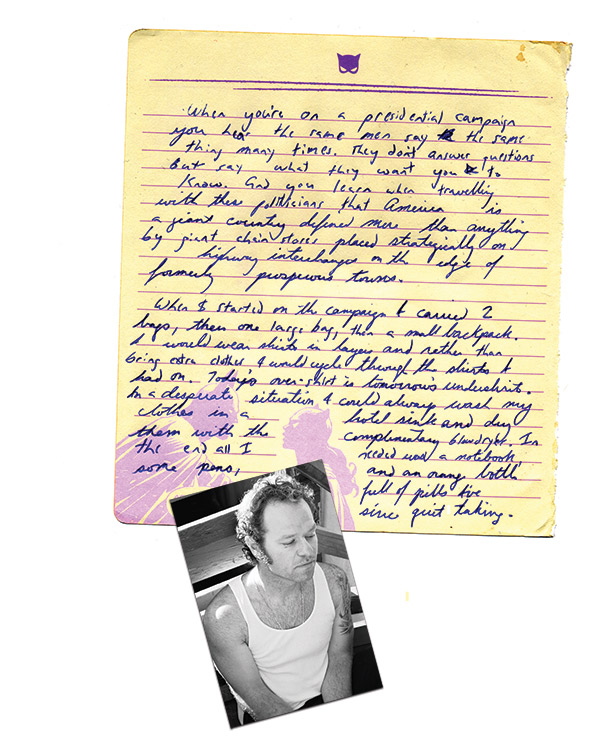 When you're on a presidential campaign
you hear the same men say the same
thing many times. They don't answer questions
but say what they want you to
know. And you learn when travelling
with these politicians that America is
a giant country defined more than anything
by giant chain stores placed strategically on
highway interchanges on the edge of
formerly prosperous towns.
When I started on the campaign I carried 2
bags, then one large bag, then a small backpack.
I would wear shirts in layers and rather than
being extra clothes I would cycle through the shirts I
had on. Today's over-shirt is tomorrow's undershirt.
In a desperate situation I could always wash my
clothes in a hotel sink and dry
them with the complimentary blowdryer. In
the end all I needed was a notebook,
some pens, and an orange bottle
full of pills I've
since quit taking.